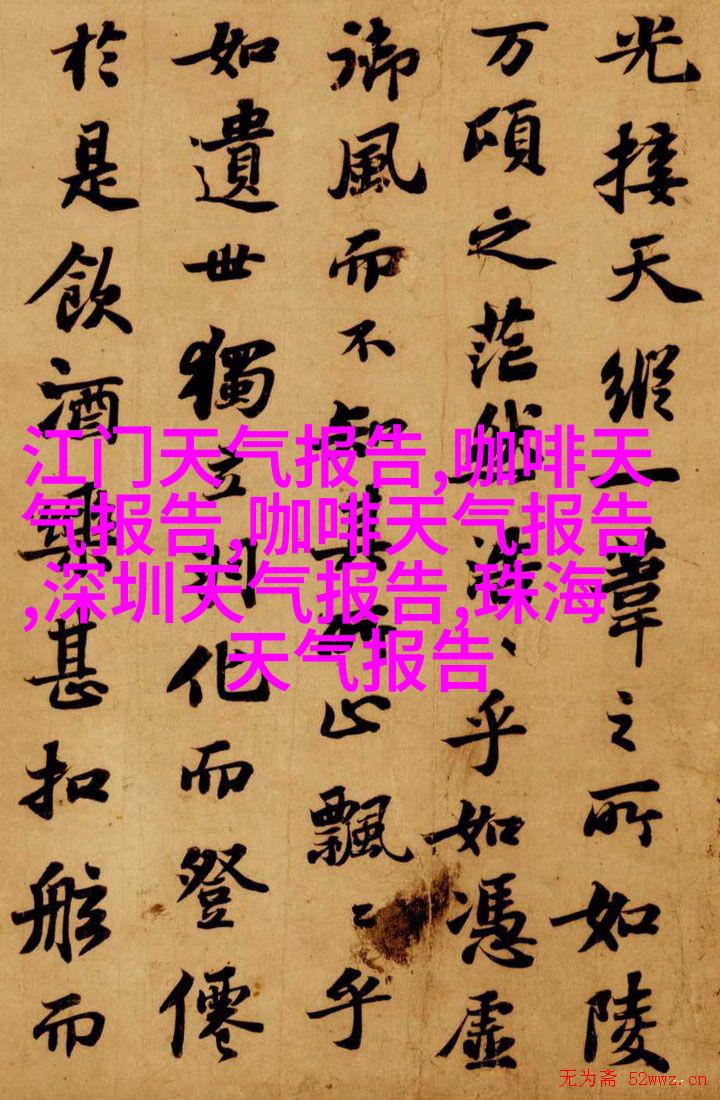 光接天縱一葦之所如陵
万頃之茫然浩〻乎如憑虛
御風而不知其所止飄〻乎
如遺世獨立羽化而登僊
於是飲酒樂甚扣舷而
江门天气报告,咖啡天
气报告,咖啡天气报告
,深圳天气报告,珠海
天气报告
无为斋 52wwz.cn